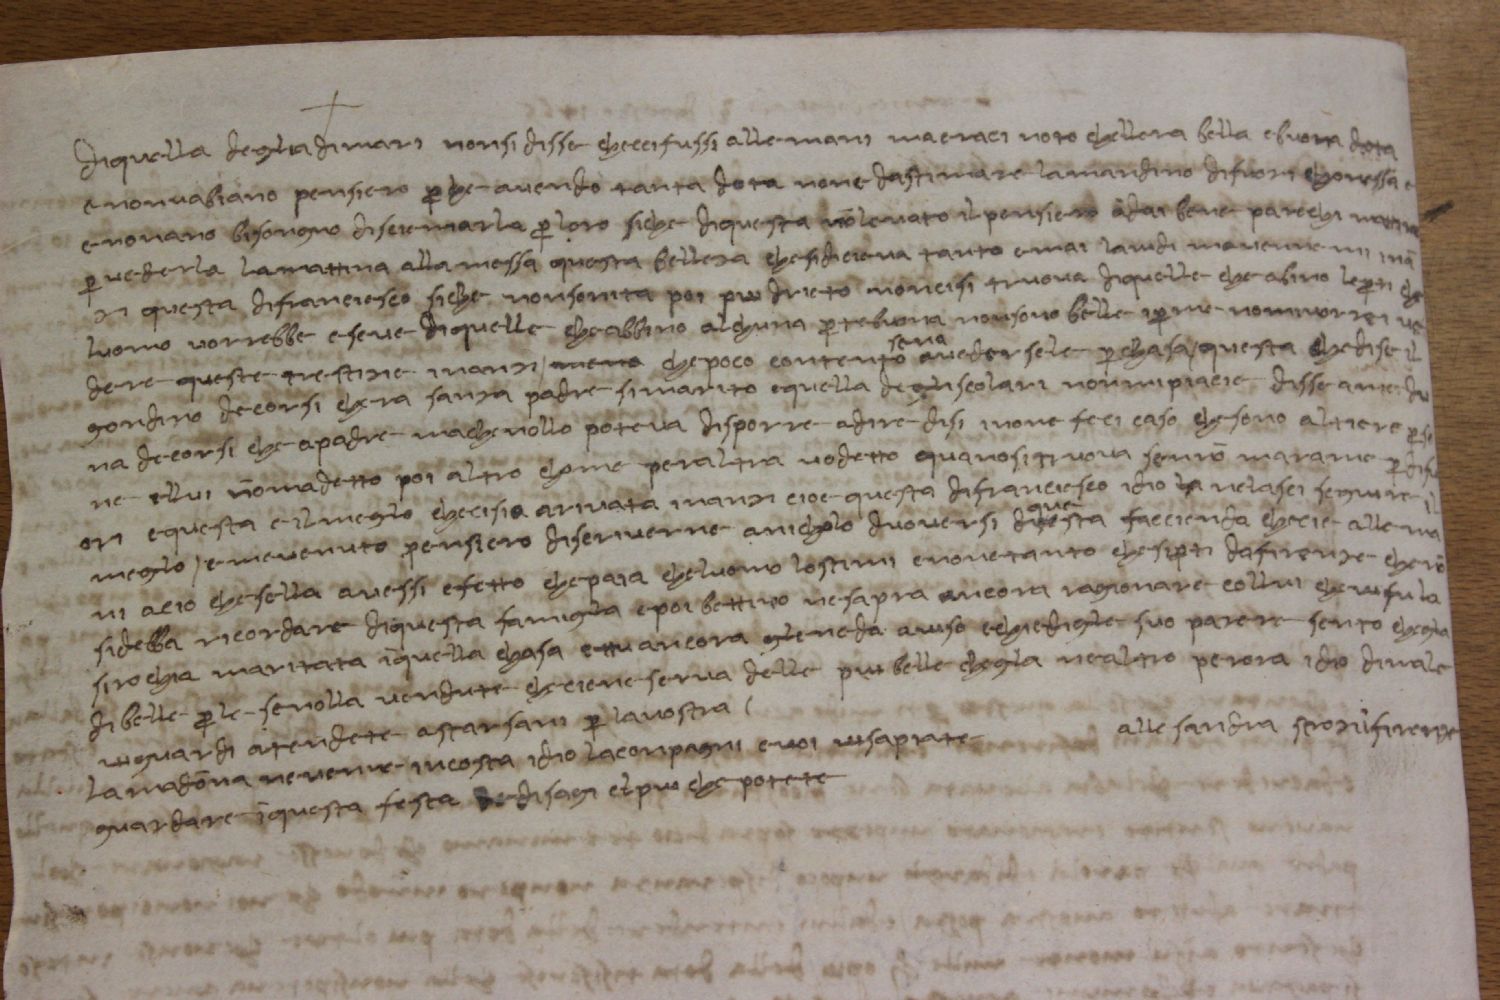 diquella degliadimari nonsi disse checifussi alle mani ma eraci noto chellera bella e buona dota
e nonvabiano pensiero perche avendo tanta dota none dastimare lamandino difuori chonessa e
e nonano bisongno disciemarla per loro siche diquesta nolevato il pensiero adai bene parechi mattine
per vederla lamattina alla messa questa belleza chesidicieva tanto emai lavidi mavenne mi inan
zi questa difranciescho siche nonsonita poi piu drieto noncisi truova diquelle che abino leparti che
luomo vorrebbe eseve diquelle cheabbino alchuna parte buona nonsono belle iperme nonvorrei ve
dere queste trestizie inanzi chepoco contento sena avedersele per chasa questa chedise il
gondino decorsi chera sanza padre simarito equella degliscolari nonmipiacie disse avedu
na decorsi che apadre machenollo poteva disporre adire disi inone feci caso che sono altiere per si
ne ellui nomadetto poi altro chome peraltra vodetto equanositruova senno marame per di fu
ori equesta e ilmeglo checisia arivata inanzi cioe questa difrancieseo idio la nelasci seguire il
meglo emevenuto pensiero discriverne anicholo doversi diquesta faccienda checie alle ma
ni acio chesella avessi efetto chepaia cheluomo lostimi enonetanto chesiparti dafirenze chenon
sidebba ricordare diquesta famigla epoi bettino nesapra ancora ragionare collui chevifu la
sirochia maritata iquella chasa ettu ancora gleneda aviso echiedigle suo parere sento chegla
dibelle perle senolla vendute checiene serva delle piu belle chegla nealtro perora idio dimale
viguardi atendete astarsani per lanostra
alesandra strozi ifirenze
lamadona nevenne incosta idio lacompagni evoi visapiate
guardare iquesta festa dedisagi elpiu che potete